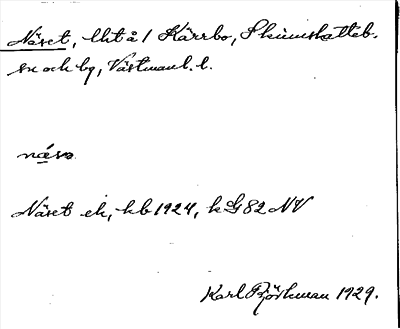 Näset, lht å 1 Kärrbo, Skinnskatteb.
sn och bg, Västmanl. l.
näsə
Näset ek, hb 1924, k G 82 NV
Karl Björkman 1929.